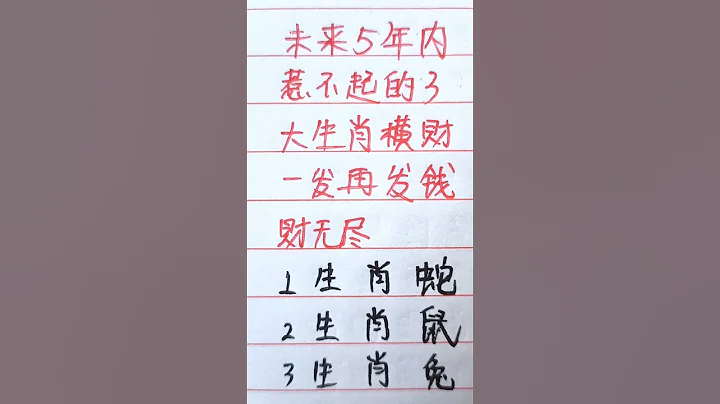 未来5年内
惹不起的3
大生肖横财
一发再发钱
财无尽
1生肖蛇
2生肖鼠
3生肖兔